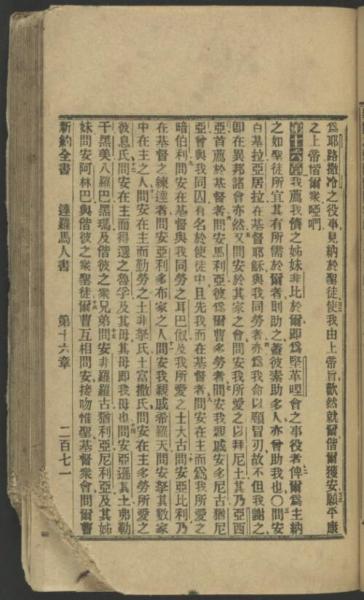 爲耶路撒冷之役事見納於聖徒使我由上帝旨歡然就爾偕爾獲安願平康
之上帝偕爾衆啞們
第十六章我薦我儕之姊妹非比於爾即爲堅革哩會之事役者俾爾爲主納
之如聖徒所宜其有所需於爾者則助之蓋彼素助多人亦曾助我也○問安
百基拉亞居拉在基督耶穌與我同勞者亦爲我命以願冒刃故不但我謝之
即在異邦諸會亦然又問安於其家之會問安我所愛之以拜尼土其乃亞西
亞首薦於基督者問安馬利亞彼爲爾曹多勞者問安我親戚安多尼古猶尼
亞曾與我同囚有名於使徒中且先我而在基督者問安在主而爲我所愛之
暗伯利問安在基督與我同勞之耳巴氐及我所愛之士大古問安亞比利乃
在基督之練達者問安亞利多布家之人問安我親戚希羅天問安拏其數家
中在主之人問安在主而勤勞之土非拏氏土富撒氏問安在主多勞所愛之
彼息氏問安在主而得選之魯孚及其母其母即我母也問安亞遜其土弗勒
干黑美八羅巴黑馬及偕彼之衆兄弟問安非羅羅古猶利亞尼利亞及其姊
妹問安阿林巴與偕彼之衆聖徒爾曹互相問安接吻惟聖基督衆會問爾曹
新約全書 達羅馬人書 第十六章 二百七一